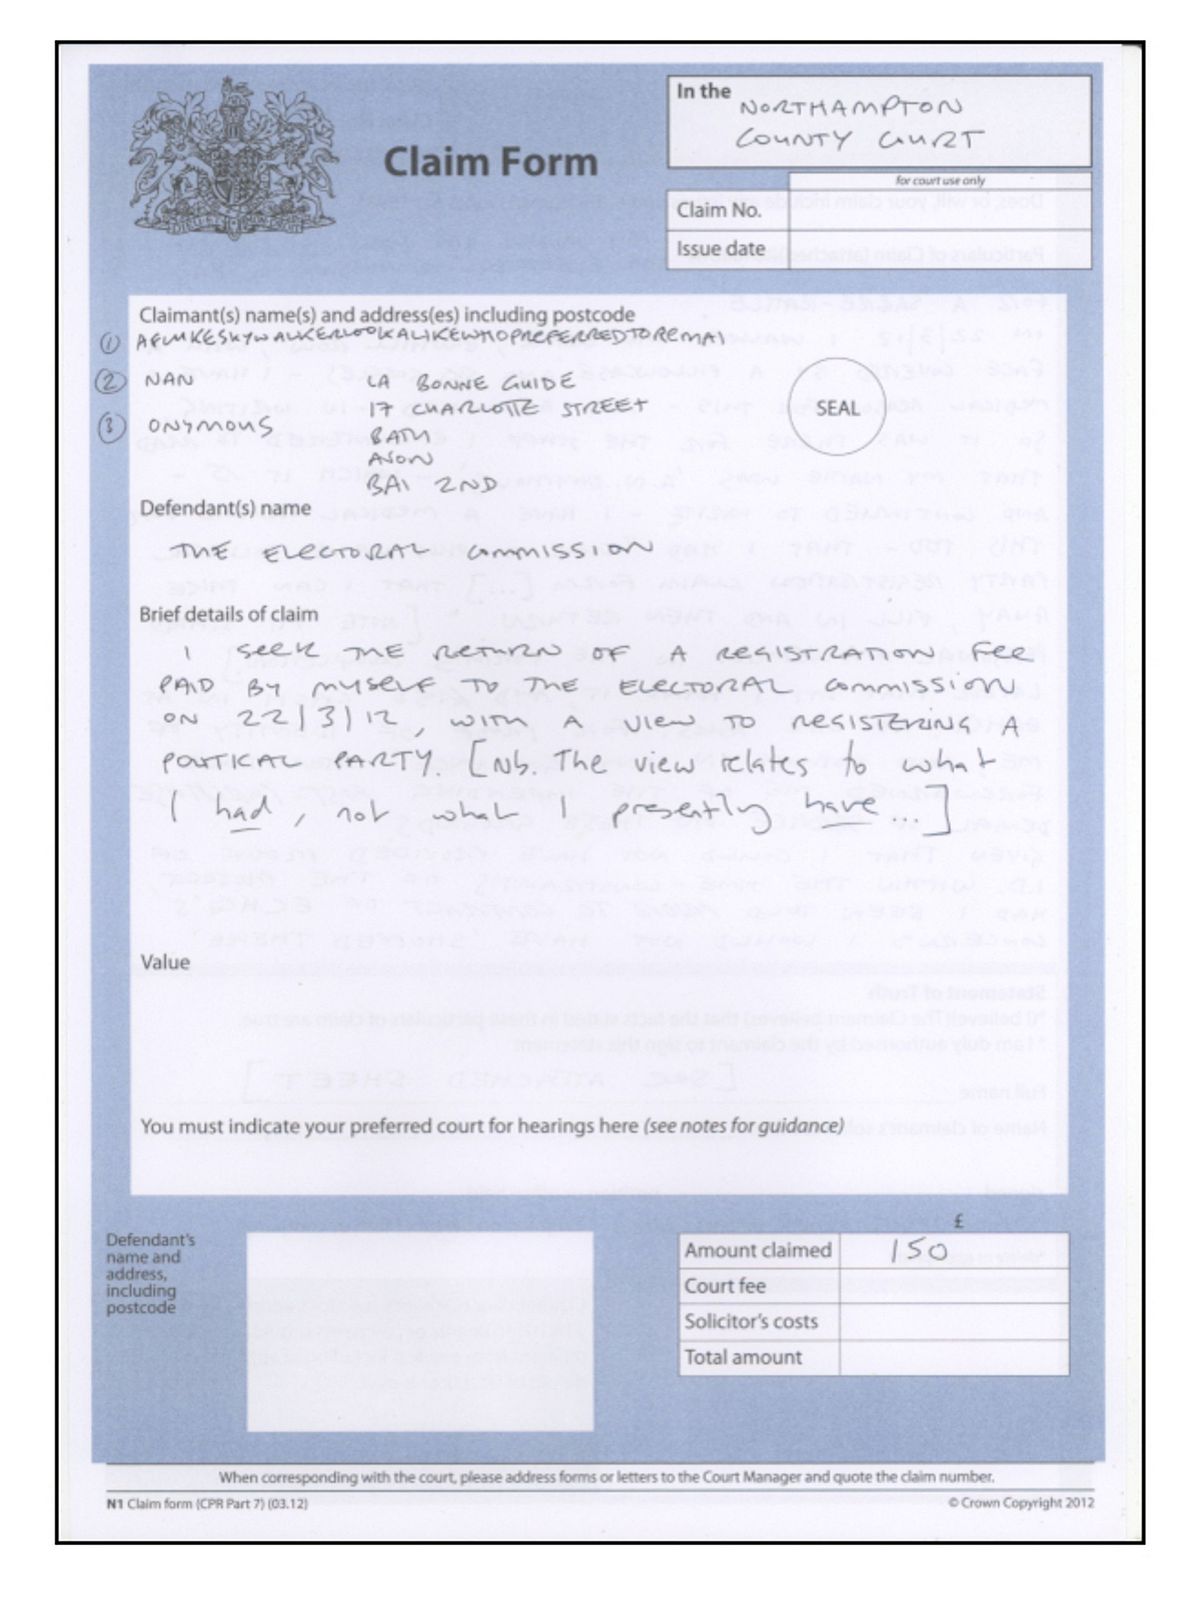 In the NORTHAMPTON
COUNTY COURT
Claim Form
for court use only
Claim No.
Issue date
Claimant(s) name(s) and address(es) including postcode
①
② NAN LA BONNE GUIDE
17 CHARLOTTE STREET
③ ONYMOUS BATH
AVON
BA1 2ND
SEAL
Defendant(s) name
THE ELECTORAL COMMISSION
Brief details of claim
I SEEK THE RETURN OF A REGISTRATION FEE
PAID BY MYSELF TO THE ELECTORAL COMMISSION
ON 22/3/12, WITH A VIEW TO REGISTERING A
POLITICAL PARTY. [Nb. The view relates to what
I had, not what I presently have ...]
Value
You must indicate your preferred court for hearings here (see notes for guidance)
Defendant's
name and
address,
including
postcode
£
Amount claimed 150
Court fee
Solicitor's costs
Total amount
When corresponding with the court, please address forms or letters to the Court Manager and quote the claim number.
N1 Claim form (CPR Part 7) (03.12) © Crown Copyright 2012